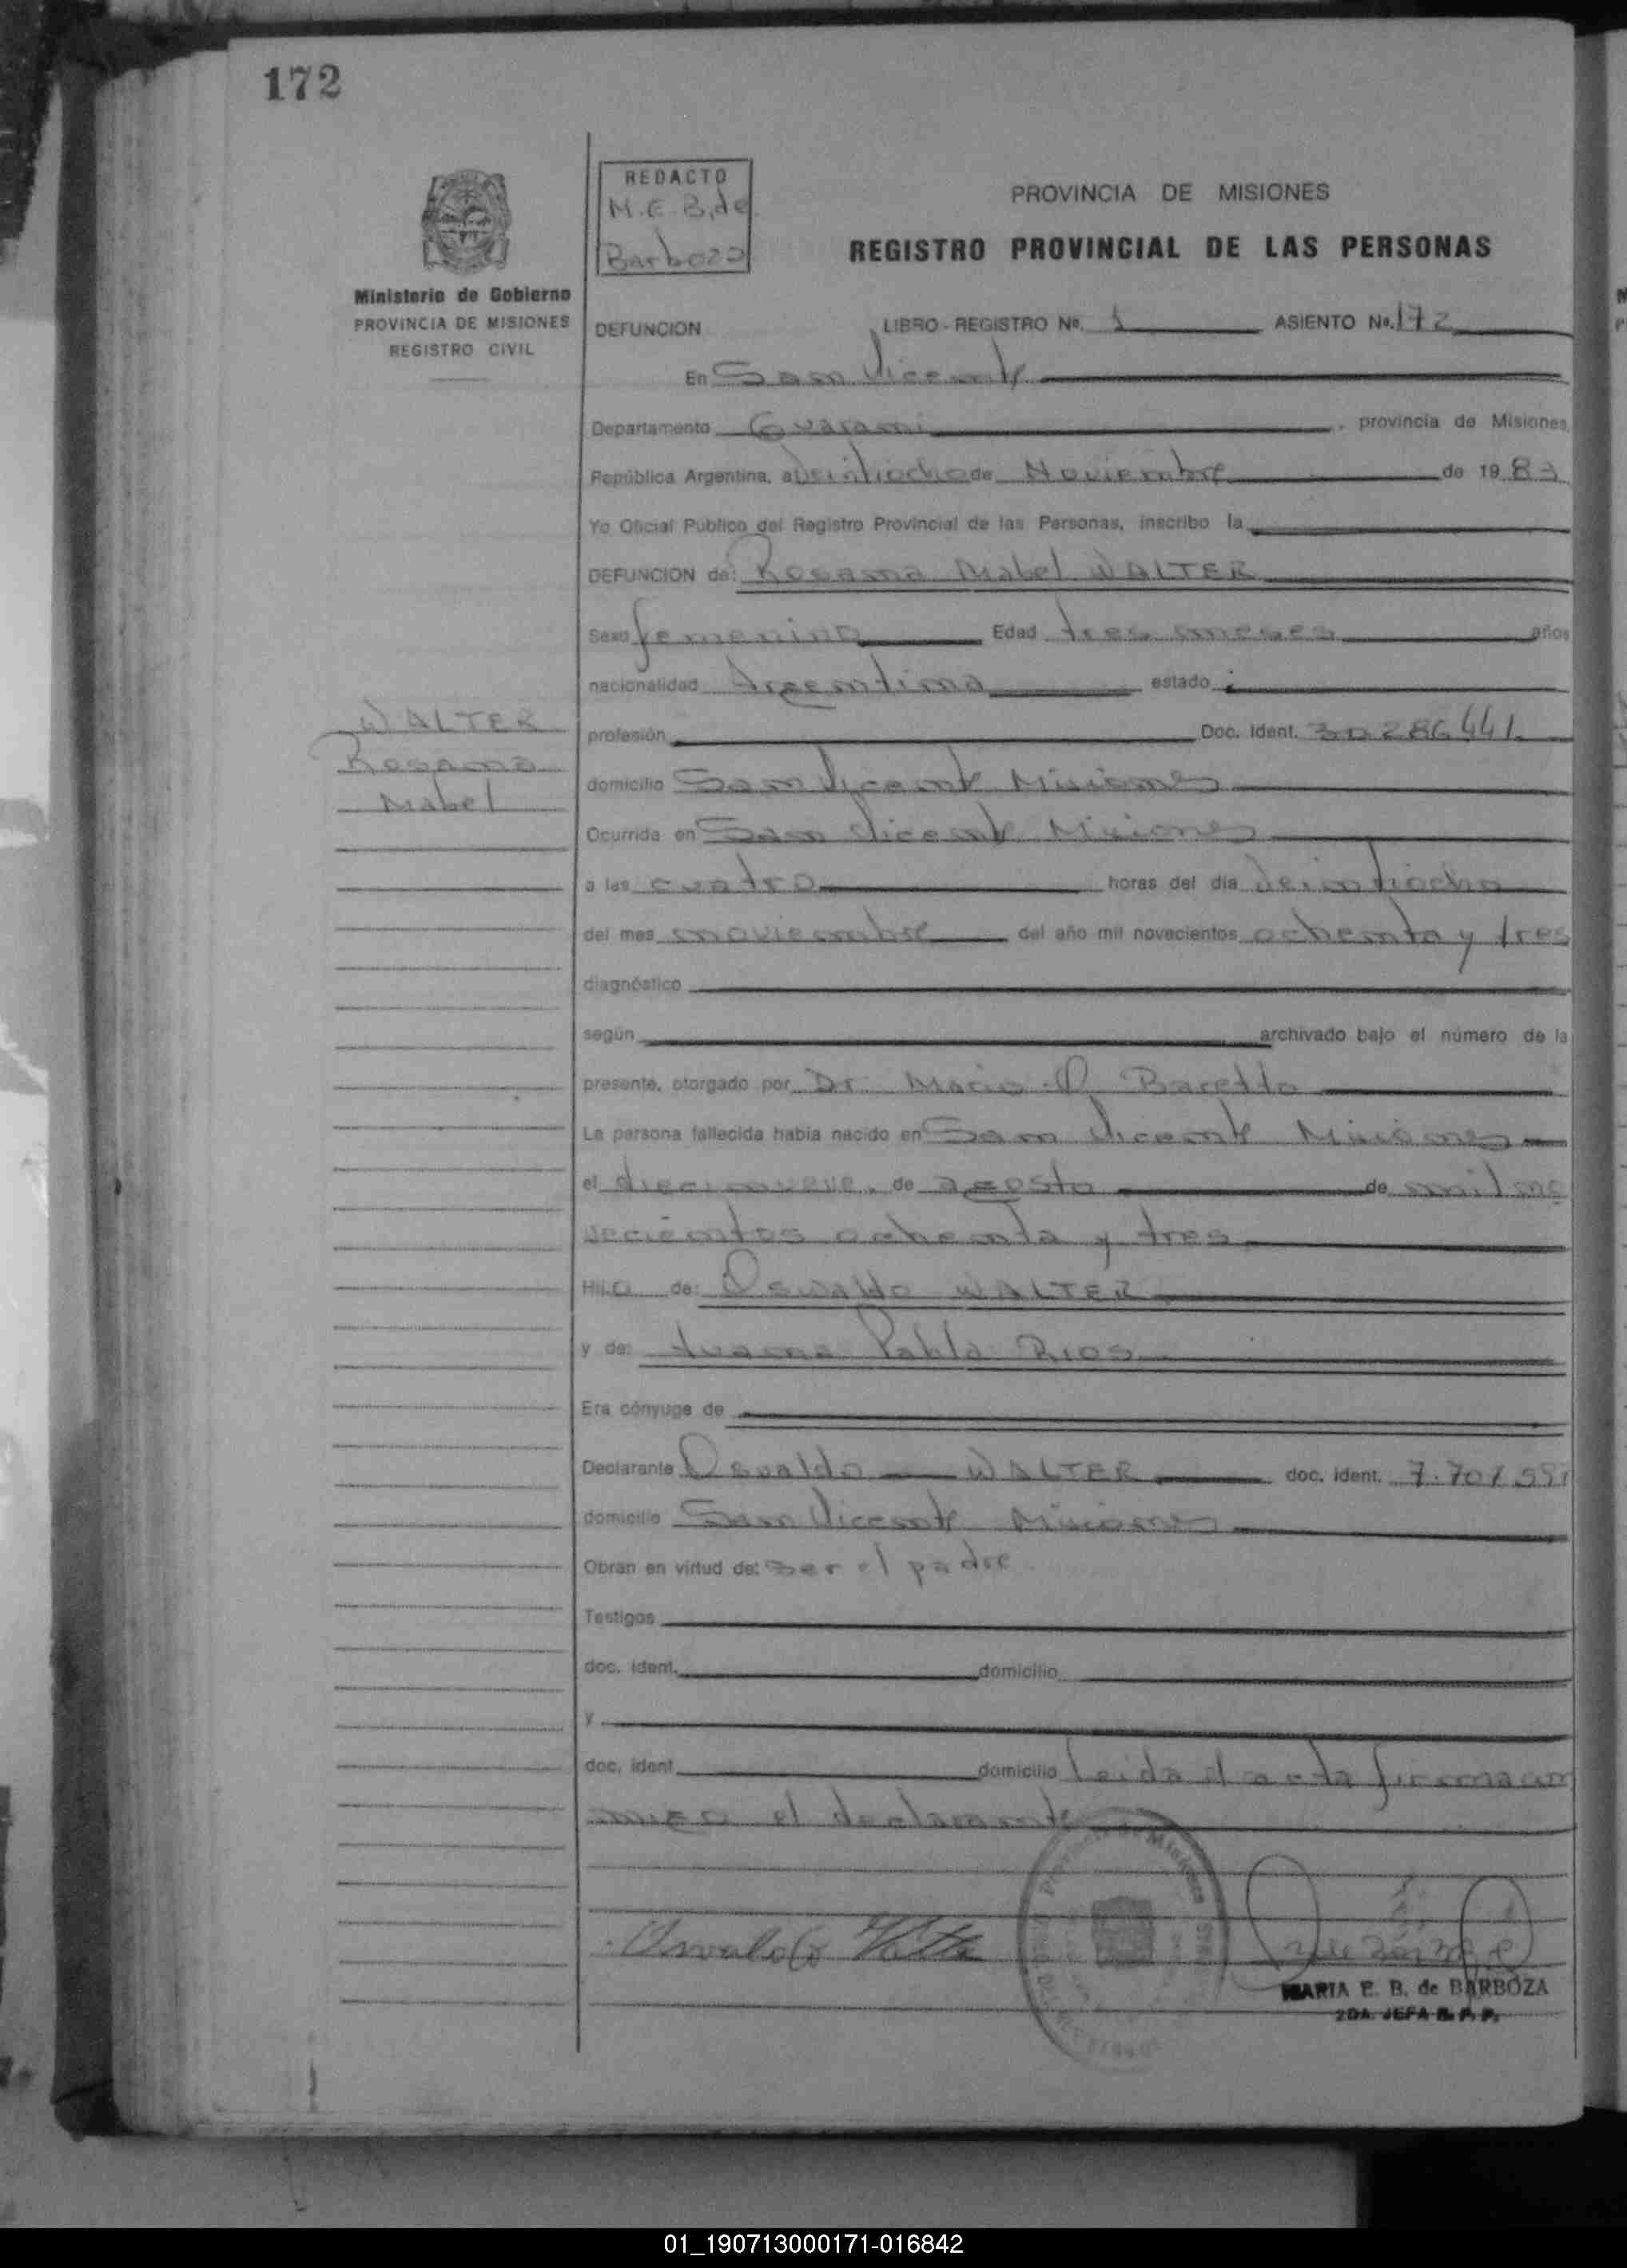 172
REDACTO
M.E.B. de
Barboza
PROVINCIA DE MISIONES
REGISTRO PROVINCIAL DE LAS PERSONAS
Ministerio de Gobierno
PROVINCIA DE MISIONES
REGISTRO CIVIL
DEFUNCION LIBRO - REGISTRO No. 1 ASIENTO No. 172
En San Vicente
Departamento Guarani , provincia de Misiones,
República Argentina, a Veintiocho de Noviembre de 19 83
Yo Oficial Publico del Registro Provincial de las Personas, inscribo la
DEFUNCION de: Rosana Mabel WALTER
Sexo femenino Edad tres meses años
nacionalidad Argentina estado
WALTER
Rosana
Mabel
profesión Doc. Ident. 30286441
domicilio San Vicente Misiones
Ocurrida en San Vicente Misiones
a las cuatro horas del día veintiocho
del mes noviembre del año mil novecientos ochenta y tres
diagnóstico
según archivado bajo el número de la
presente, otorgado por Dr. Mario O Baretto
La persona fallecida había nacido en San Vicente Misiones
el diecinueve de agosto de mil no
vecientos ochenta y tres
HIJO de: Osvaldo WALTER
y de: Juana Pabla Rios
Era cónyuge de
Declarante Osvaldo WALTER doc. ident. 7.701
domicilio San Vicente Misiones
Obran en virtud de: ser el padre
Testigos
doc. ident. domicilio
y
doc. ident. domicilio leida el acta firma con
migo el declarante
Provincia de Misiones
Osvaldo Walter
MARIA E. B. de BARBOZA
2DA. JEFA R. P. P.
01_190713000171-016842